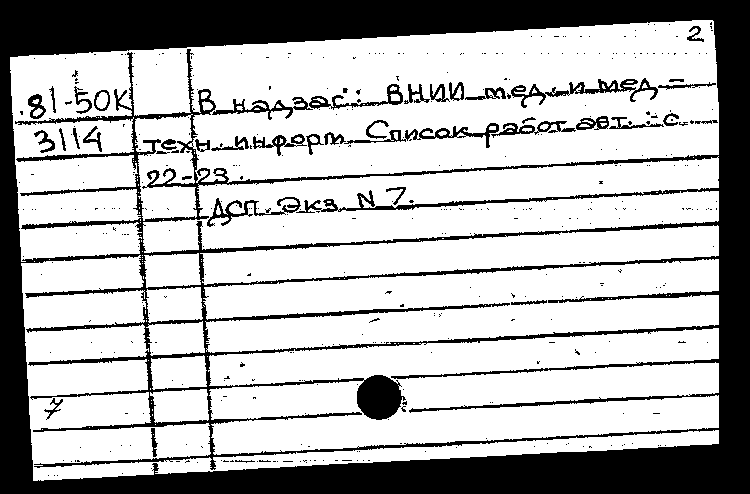 2
81-50К В надзаг.: ВНИИ мед. и мед=
3114 техн. информ. Список работ авт.: с.
22-23.
ДСП. Экз. N 7.
7